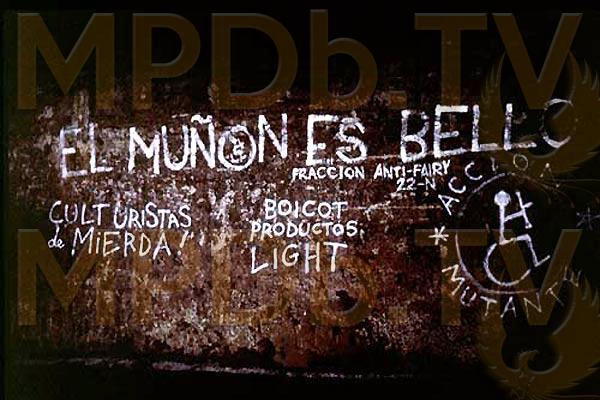 MPDb.TV
EL MUÑON ES BELLO
FRACCION ANTI-FAIRY
22-N
ACCION
MUTANTE
CULTURISTAS
de MiERDA!
BOICOT
PRODUCTOS
LIGHT
MPDb.TV